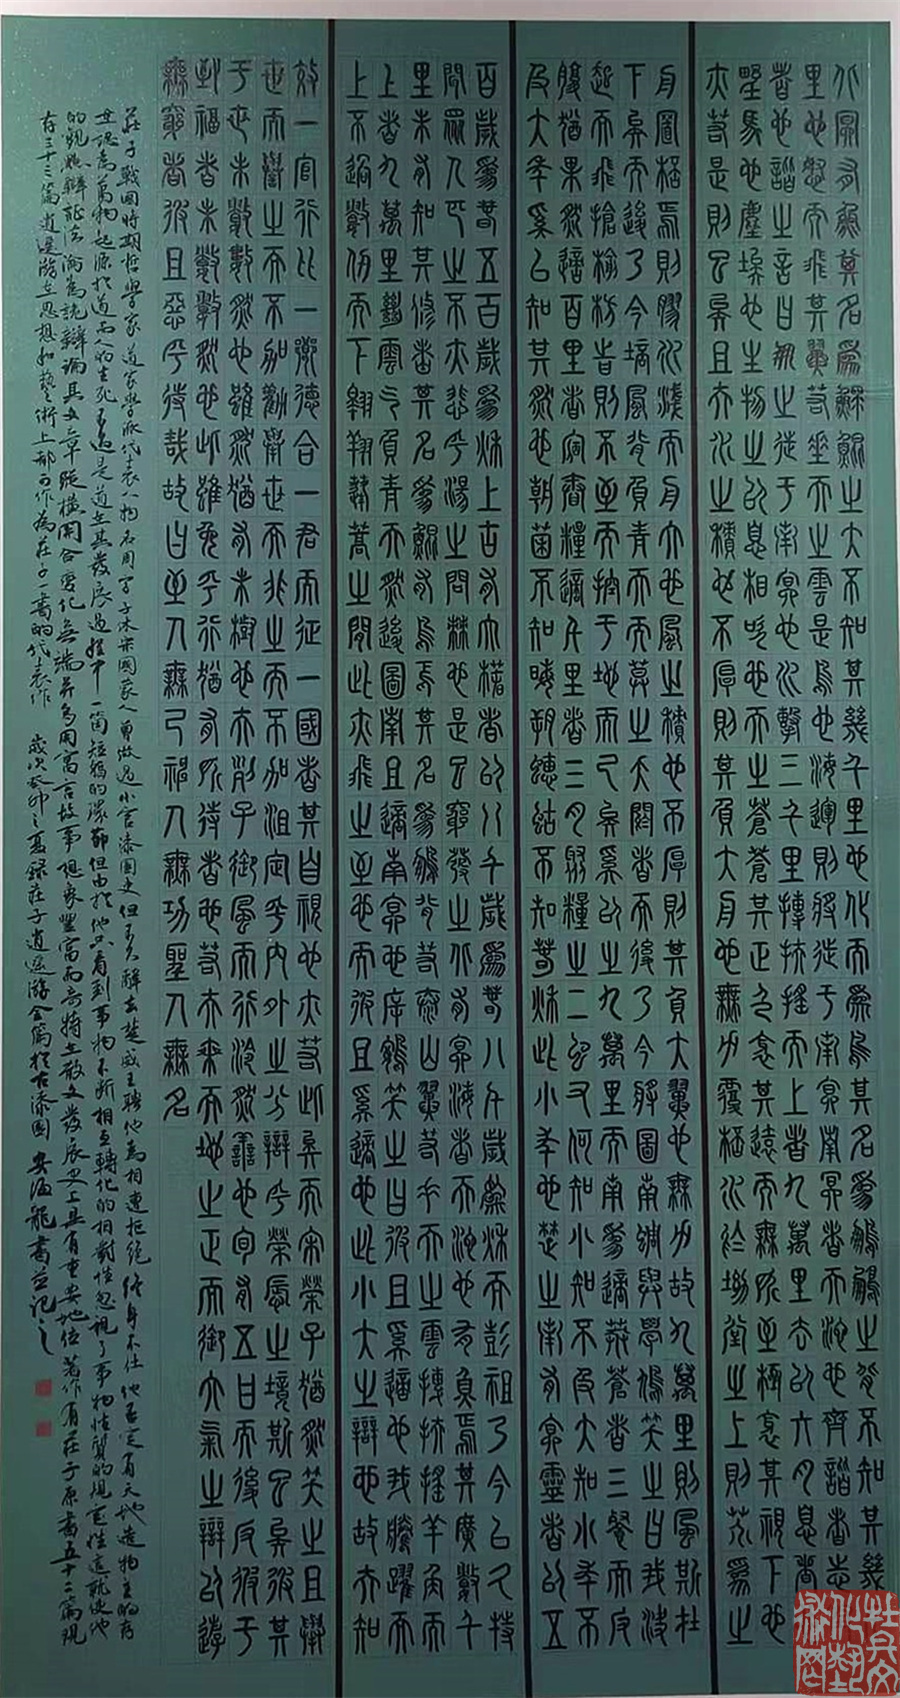 北冥有魚其名為鯤鯤之大不知其幾千里也化而為鳥其名為鵬鵬之背不知其幾
里也怒而飛其翼若垂天之雲是鳥也海運則將徙于南冥南冥者天池也齊諧者志
者也諧之言曰鵬之徙于南冥也水擊三千里摶扶搖而上者九萬里去以六月息者
野馬也塵埃也生物之以息相吹也天之蒼蒼其正色邪其遠而無所至極邪其視下也
亦若是則已矣且夫水之積也不厚則其負大舟也無力覆杯水於坳堂之上則芥為之
舟置杯焉則膠水淺而舟大也風之積也不厚則其負大翼也無力故九萬里則風斯
下矣而後乃今培風背負青天而莫之夭閼者而後乃今將圖南蜩與學鳩笑之曰我決
起而飛搶榆枋時則不至而控于地而已矣奚以之九萬里而南為適莽蒼者三餐而反
腹猶果然適百里者宿舂糧適千里者三月聚糧之二蟲又何知小知不及大知小年不
及大年奚以知其然也朝菌不知晦朔蟪蛄不知春秋此小年也楚之南有冥靈者以五
百歲為春五百歲為秋上古有大椿者以八千歲為春八千歲為秋而彭祖乃今以久特
聞眾人匹之不亦悲乎湯之問棘也是已窮發之北有冥海者天池也有魚焉其廣數千
里未有知其修者其名為鯤有鳥焉其名為鵬背若泰山翼若垂天之雲摶扶搖羊角而
上者九萬里絕雲氣負青天然後圖南且適南冥也斥鴳笑之曰彼且奚適也我騰躍而
上不過數仞而下翱翔蓬蒿之間此亦飛之至也而彼且奚適也此小大之辯也故夫知
效一官行比一鄉德合一君而征一國者其自視也亦若此矣而宋榮子猶然笑之且舉
世而譽之而不加勸舉世而非之而不加沮定乎內外之分辯乎榮辱之境斯已矣彼其
于世未數數然也雖然猶有未樹也夫列子御風而行泠然善也旬有五日而後反彼于
致福者未數數然也此雖免乎行猶有所待者也若夫乘天地之正而御六氣之辯以遊
無窮者彼且惡乎待哉故曰至人無己神人無功聖人無名
莊子戰國時期哲學家道家學派代表人物名周字子休宋國蒙人曾做過小官漆園吏但不久辭去楚威王聘他為相遭拒絕終身不仕他否定有天地造物主的存
世認為萬物起源於道而人的生死只不過是道在其發展過程中一箇短暫的演節但由於他只看到事物不斷相互轉化的相對性忽視了事物性質的規定性這就使他
的觀點辯証法淪為詭辯論其文章縱橫開合變化無端并多用寓言故事想象豐富而奇特在散文發展史上具有重要地位著作有莊子原書五十二篇現
存三十三篇逍遙游在思想和藝術上都可作為莊子一書的代表作 歲次癸卯之夏錄莊子逍遙游全篇於古漆園 安海龍書並記之